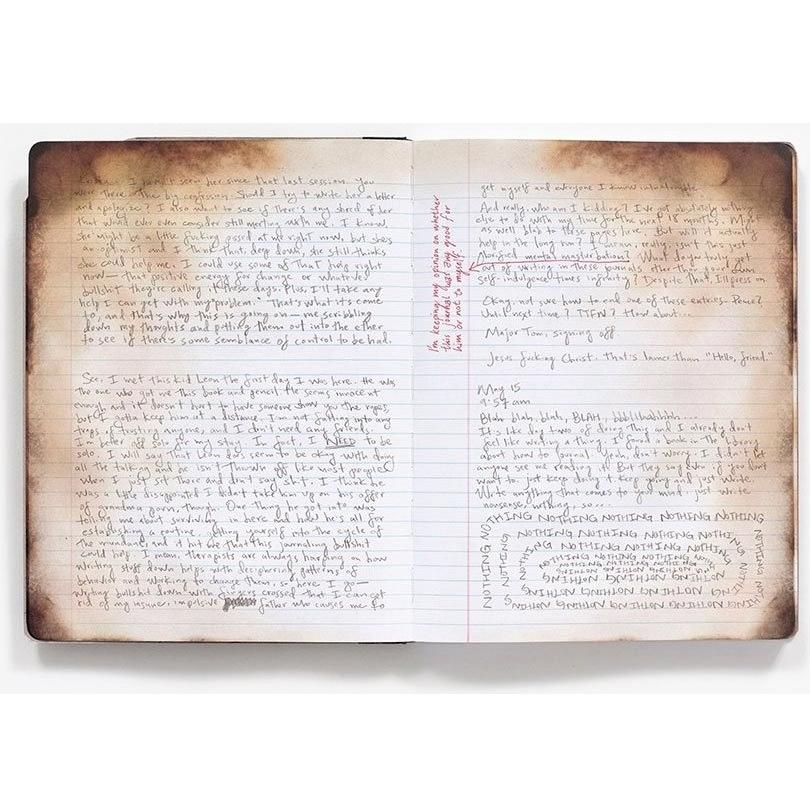 I haven't seen her since that last session. You
were there. Awe by confession. Should I try to write her a letter
and apologize? I also want to see if there's any shred of her
that would ever even consider still meeting with me. I know,
she might be a little fucking pissed at me right now, but she's
an optimist and I think that, deep down, she still thinks
she could help me. I could use some of that help right
now— that positive energy for change or whatever
bullshit they're calling it these days. Plus, I'll take any
help I can get with my "problem." That's what it's come
to, and that's why this is going on — me scribbling
down my thoughts and putting them out into the ether
to see if there's some semblance of control to be had.
See, I met this kid Leon the first day I was here. He was
the one who got me this book and pencil. He seems innocent
enough and it doesn't hurt to have someone show you the ropes,
but I gotta keep him at a distance. I'm not falling into any
traps, trusting anyone, and I don't need any friends.
I'm better off solo for my stay. In fact, I NEED to be
solo. I will say that Leon does seem to be okay with doing
all the talking and he isn't thrown off like most people
when I just sit there and don't say shit. I think he
was a little disappointed I didn't take him up on his offer
of grandma porn, though. One thing he got into was
telling me about surviving in here and how he's all for
establishing a routine, getting yourself into the cycle of
the mundane, and it hit me that this journaling bullshit
could help. I mean, therapists are always harping on how
writing stuff down helps with deciphering patterns of
behavior and working to change them, so here I go—
writing bullshit down with fingers crossed that I can get
rid of my insane, impulsive father who causes me to
get myself and everyone I know into trouble.
And really, who am I kidding? I've got absolutely nothing
else to do with my time for the next 18 months. Might
as well blab to these pages here. But will it actually
help in the long run? I mean, really, isn't this just
glorified mental masturbation? What do you truly get
out of writing in these journals other than your own
self-indulgence times infinity? Despite that, I'll press on.
Okay, not sure how to end one of these entries. Peace?
Until next time? TTFN? How about...
Major Tom, signing off.
Jesus fucking Christ. That's lamer than "Hello, friend."
I'm keeping my opinion on whether
this journal has any good for
him or not to myself.
May 15
9:57am
Blah blah, blah, BLAH, bbblbabhhh....
It's like day two of doing this and I already don't
feel like writing a thing. I found a book in the library
about how to journal. Yeah, don't worry. I didn't let
anyone see me reading it. But they say even if you don't
want to, just keep doing it, keep going and just write.
Write anything that comes to your mind. Just write
nonsense, nothing, so...
NOTHING NOTHING NOTHING NOTHING NOTHING NOTHING
NOTHING NOTHING NOTHING NOTHING NOTHING
NOTHING NOTHING NOTHING NOTHING
NOTHING NOTHING NOTHING NOTHING